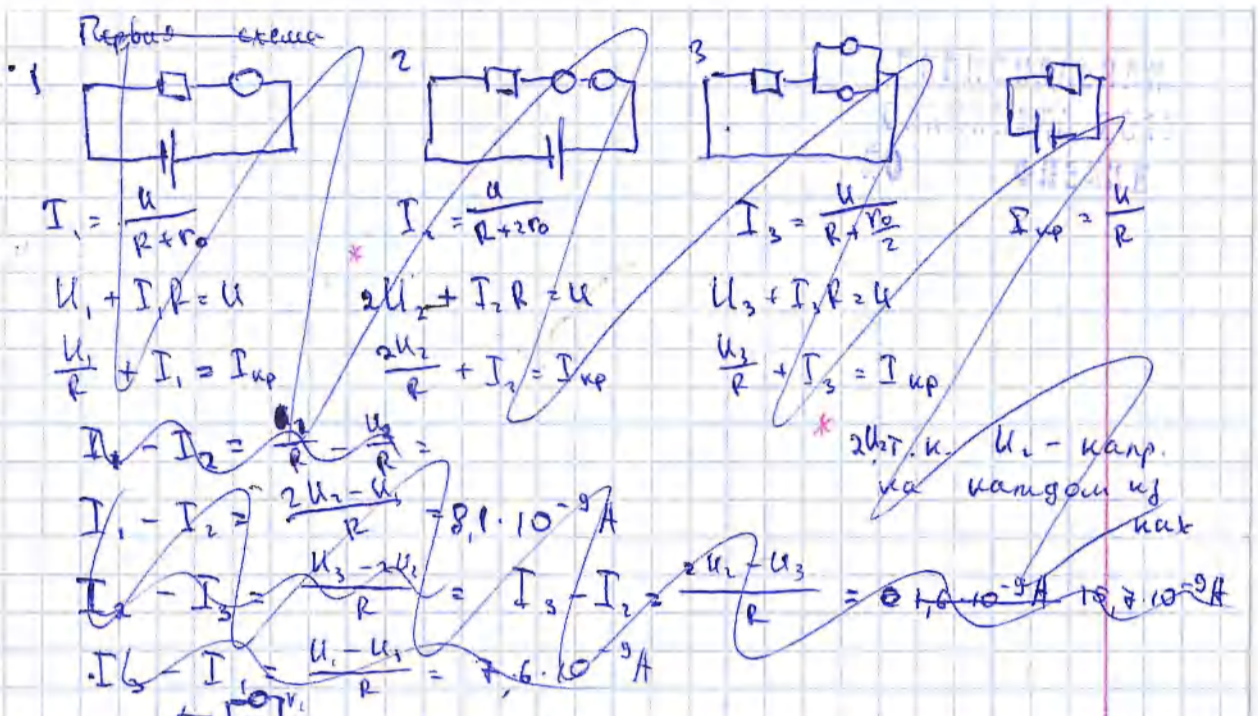 Первая схема
1 2 3
I₁ = U/(R+r₀) I₂ = U/(R+2r₀) I₃ = U/(R+r₀/2) Iкр = U/R
*
U₁ + I₁R = U 2U₂ + I₂R = U U₃ + I₃R = U
U₁/R + I₁ = Iкр 2U₂/R + I₂ = Iкр U₃/R + I₃ = Iкр
*
I₁ - I₂ = U₂/R - U₂/R =
2U₂ т.к. U₂ - напр.
на каждом из
них
I₁ - I₂ = (2U₂ - U₁)/R = 8,1·10⁻⁹A
I₂ - I₃ = (U₃ - 2U₂)/R = I₃ - I₂ = (2U₂ - U₃)/R =
I₃ - I₁ = (U₁ - U₃)/R = 7,6·10⁻⁹A